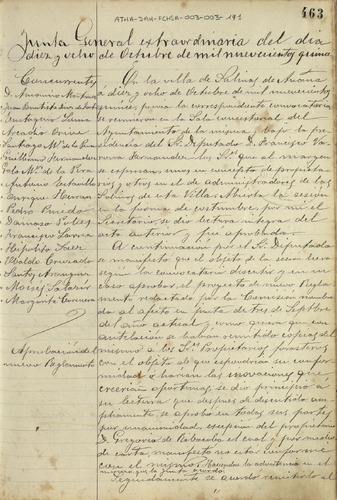 ATHA-DAH-FCHSA-003-003-191
463
Junta General extraordinaria del dia
diez y ocho de Octubre de mil nuevecientos quince
Concurrentes
D. Antonio Martinez
Juan Bautista
Eustaquio
Arcadio
Santiago Mª de la
Guillermo Hernandez
Mª de la Pera
Antonio
Enrique Herran
Pedro Pinedo
Damaso
Francisco
Hipolito Saez
Ubaldo Cruzado
Santos
Moises Salazar
Margarito
Aprobacion del
nuevo Reglamento
En la villa de Salinas de Añana
a diez y ocho de Octubre de mil nuevecientos
quince; previa la correspondiente convocatoria
se reunieron en la Sala consistorial del
Ayuntamiento de la misma, bajo la pre-
sidencia del Sr. Diputado D. Francisco
Hernandez los Sres. que al margen
se expresan, unos en concepto de propieta-
rios y otros en el de administradores de las
Salinas de esta Villa. Abierta la sesion
a la hora de costumbre, por mi el
Secretario se dio lectura integra del
acta anterior y fue aprobada.
A continuacion por el Sr. Diputado
se manifesto que el objeto de la sesion era
segun la convocatoria discutir y en su
caso aprobar, el proyecto de nuevo Regla-
mento redactado por la Comision nombra-
da al efecto en junta de tres de Septbre
del año actual, y como quiera que con
antelacion se habian remitido copias del
mismo a los Sres. Propietarios forasteros
con el objeto de que expondrian su confor-
midad o harian las inovaciones que
creerian oportunas, se dio principio á
su lectura que despues de discutido am-
pliamente se aprobo en todas sus partes
por unanimidad, excepcion del propietario
D. Gregorio de Rabasoba el cual y por medio
de carta, manifesto no estar conforme
con el mismo. Haciendo la advertencia en el
Seguidamente se acordo remitirlo al